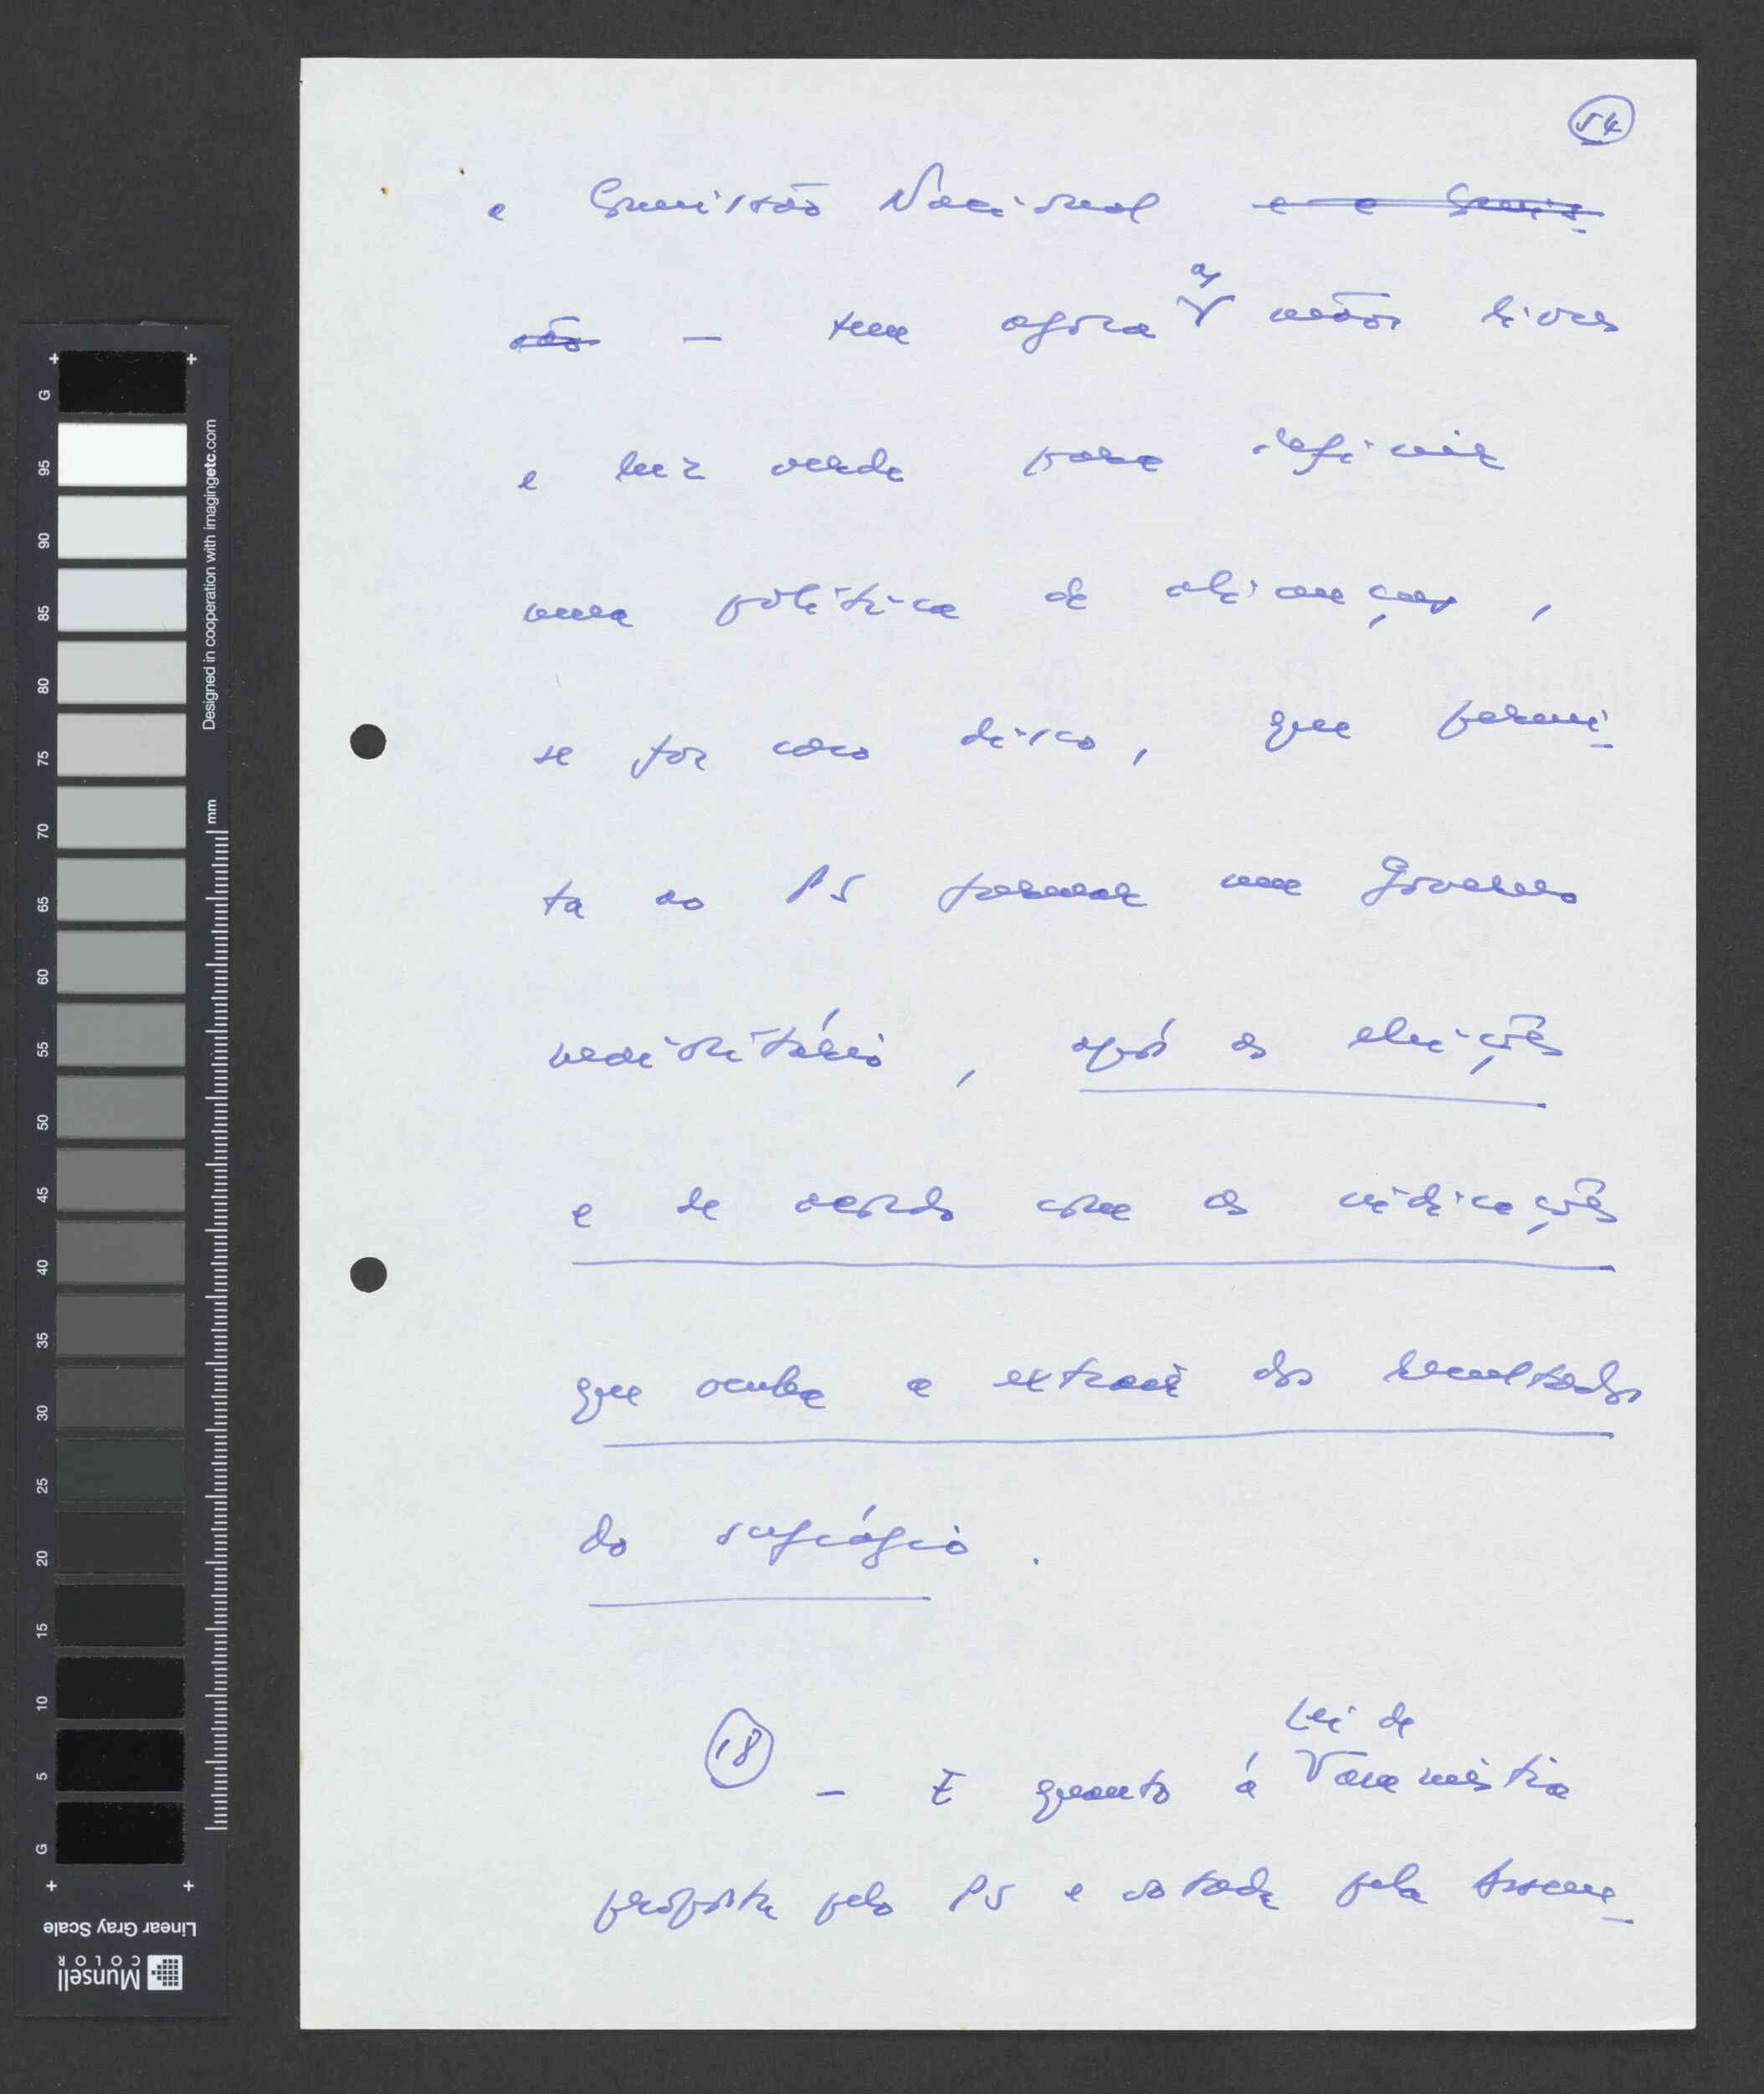 54
e Comissão Nacional e a Comis-
são — tem agora as mãos livres
e luz verde para definir
uma política de alianças,
se for caso disso, que permi-
ta ao PS formar um Governo
maioritário, após as eleições
e de acordo com as indicações
que caiba extrair dos resultados
do sufrágio.
Lei de
18 — E quanto à Amnistia
proposta pelo PS e votada pela Assem-
G 95 90 85 80 75 70 65 60 55 50 45 40 35 30 25 20 15 10 5 G
Designed in cooperation with imagingetc.com
mm
Linear Gray Scale
Munsell
COLOR